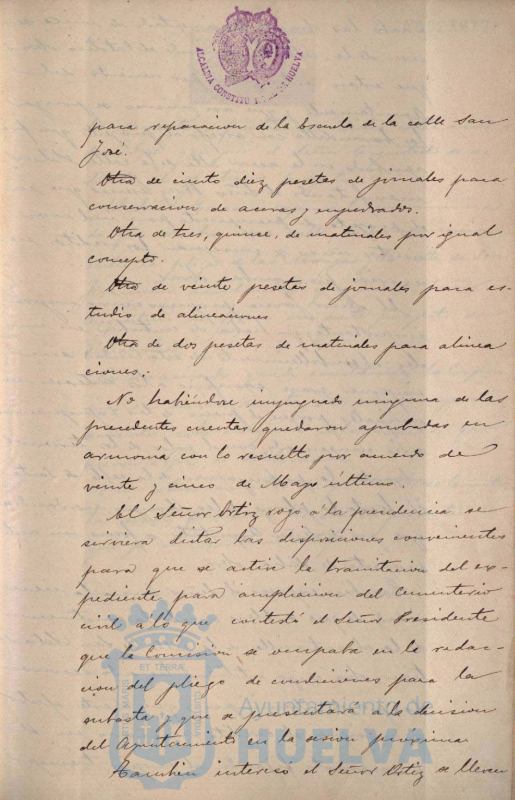 ALCALDIA CONSTITU DE HUELVA
para reparacion de la Escuela de la calle San
José.
Otra de ciento diez pesetas de jornales para
conservacion de aceras y empedrados.
Otra de tres, quince, de materiales por igual
concepto.
Otra de veinte pesetas de jornales para es-
tudio de alineaciones
Otra de dos pesetas de materiales para alinea
ciones.
No habiéndose impugnado ninguna de las
precedentes cuentas quedaron aprobadas en
armonía con lo resuelto por acuerdo de
veinte y cinco de Mayo último.
El Señor Ortiz rogó á la presidencia se
sirviera dictar las disposiciones convenientes
para que se active la tramitacion del ex-
pediente para ampliacion del Cementerio
civil á lo que contestó el Señor Presidente
que la Comision se ocupaba en la redac-
cion del pliego de condiciones para la
subasta y que se presentará á la decision
del Ayuntamiento en la sesion próxima.
Tambien interesó el Señor Ortiz se lleven
ET TERRÆ
Ayuntamiento de
HUELVA